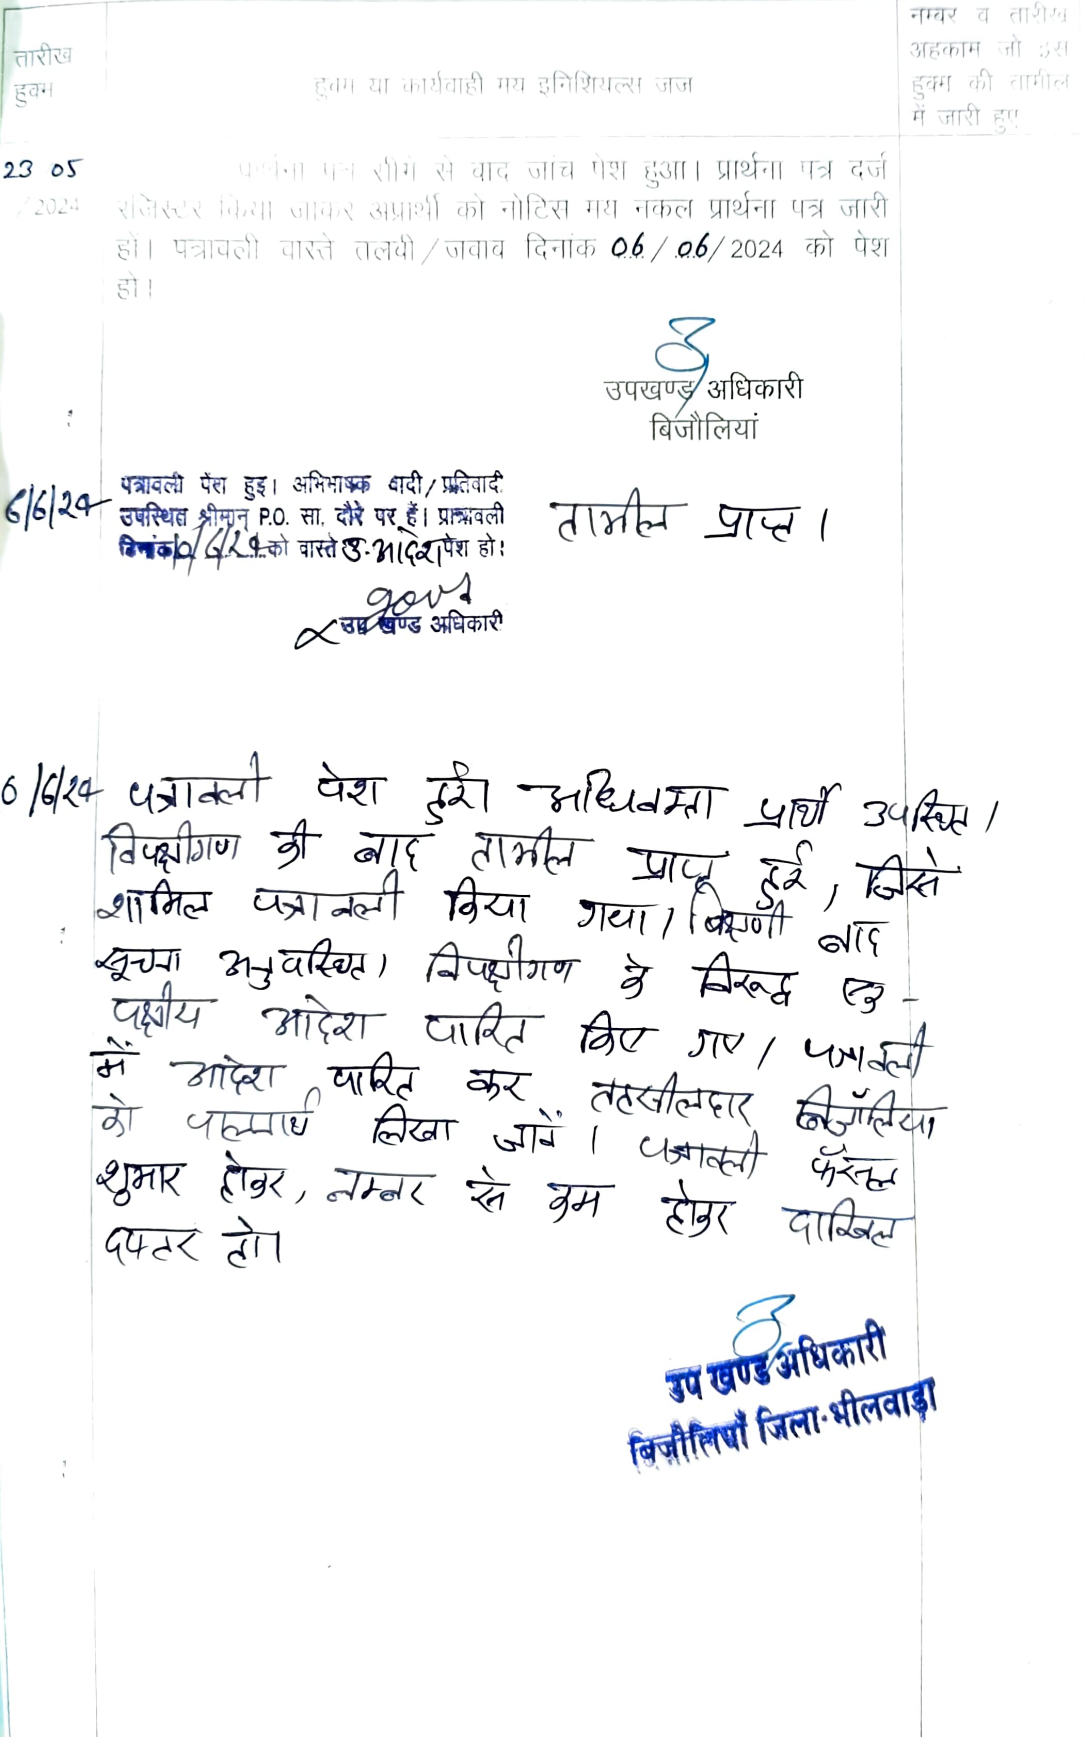 तारीख
हुक्म
हुक्म या कार्यवाही मय इनिशियल्स जज
नम्बर व तारीख
अहकाम जो इस
हुक्म की तामील
में जारी हुए
23 05
/2024
प्रार्थना पत्र सीगे से बाद जांच पेश हुआ। प्रार्थना पत्र दर्ज
रजिस्टर किया जाकर अप्रार्थी को नोटिस मय नकल प्रार्थना पत्र जारी
हों। पत्रावली वास्ते तलबी/जवाब दिनांक 06/06/2024 को पेश
हो।
उपखण्ड अधिकारी
बिजौलियां
6/6/24
पत्रावली पेश हुई। अभिभाषक वादी/प्रतिवादी
उपस्थित श्रीमान् P.O. सा. दौरे पर हैं। पत्रावली
दिनांक /6/24 को वास्ते उ.आदेश पेश हो।
उप खण्ड अधिकारी
तामील प्राप्त।
6/6/24
पत्रावली पेश हुई। अधिवक्ता प्रार्थी उपस्थित।
विपक्षीगण की बाद तामील प्राप्त हुई, जिसे
शामिल पत्रावली किया गया। बाद
सूचना अनुपस्थित। विपक्षीगण के विरूद्ध एक-
पक्षीय आदेश पारित किए गए। पत्रावली
में आदेश पारित कर तहसीलदार बिजौलिया
को पालनार्थ लिखा जावें। पत्रावली फैसल
शुमार होकर, नम्बर से कम होकर दाखिल
दफ्तर हो।
उप खण्ड अधिकारी
बिजौलियाँ जिला-भीलवाड़ा